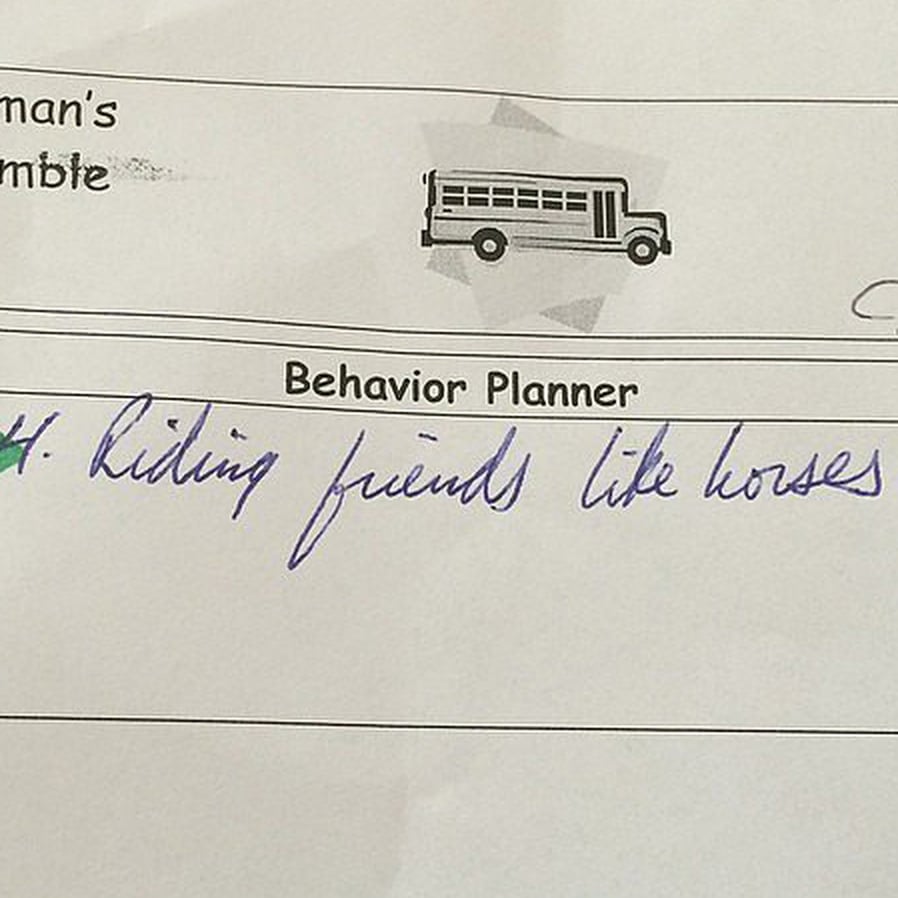 man's
mble
Behavior Planner
H. Riding friends like horses